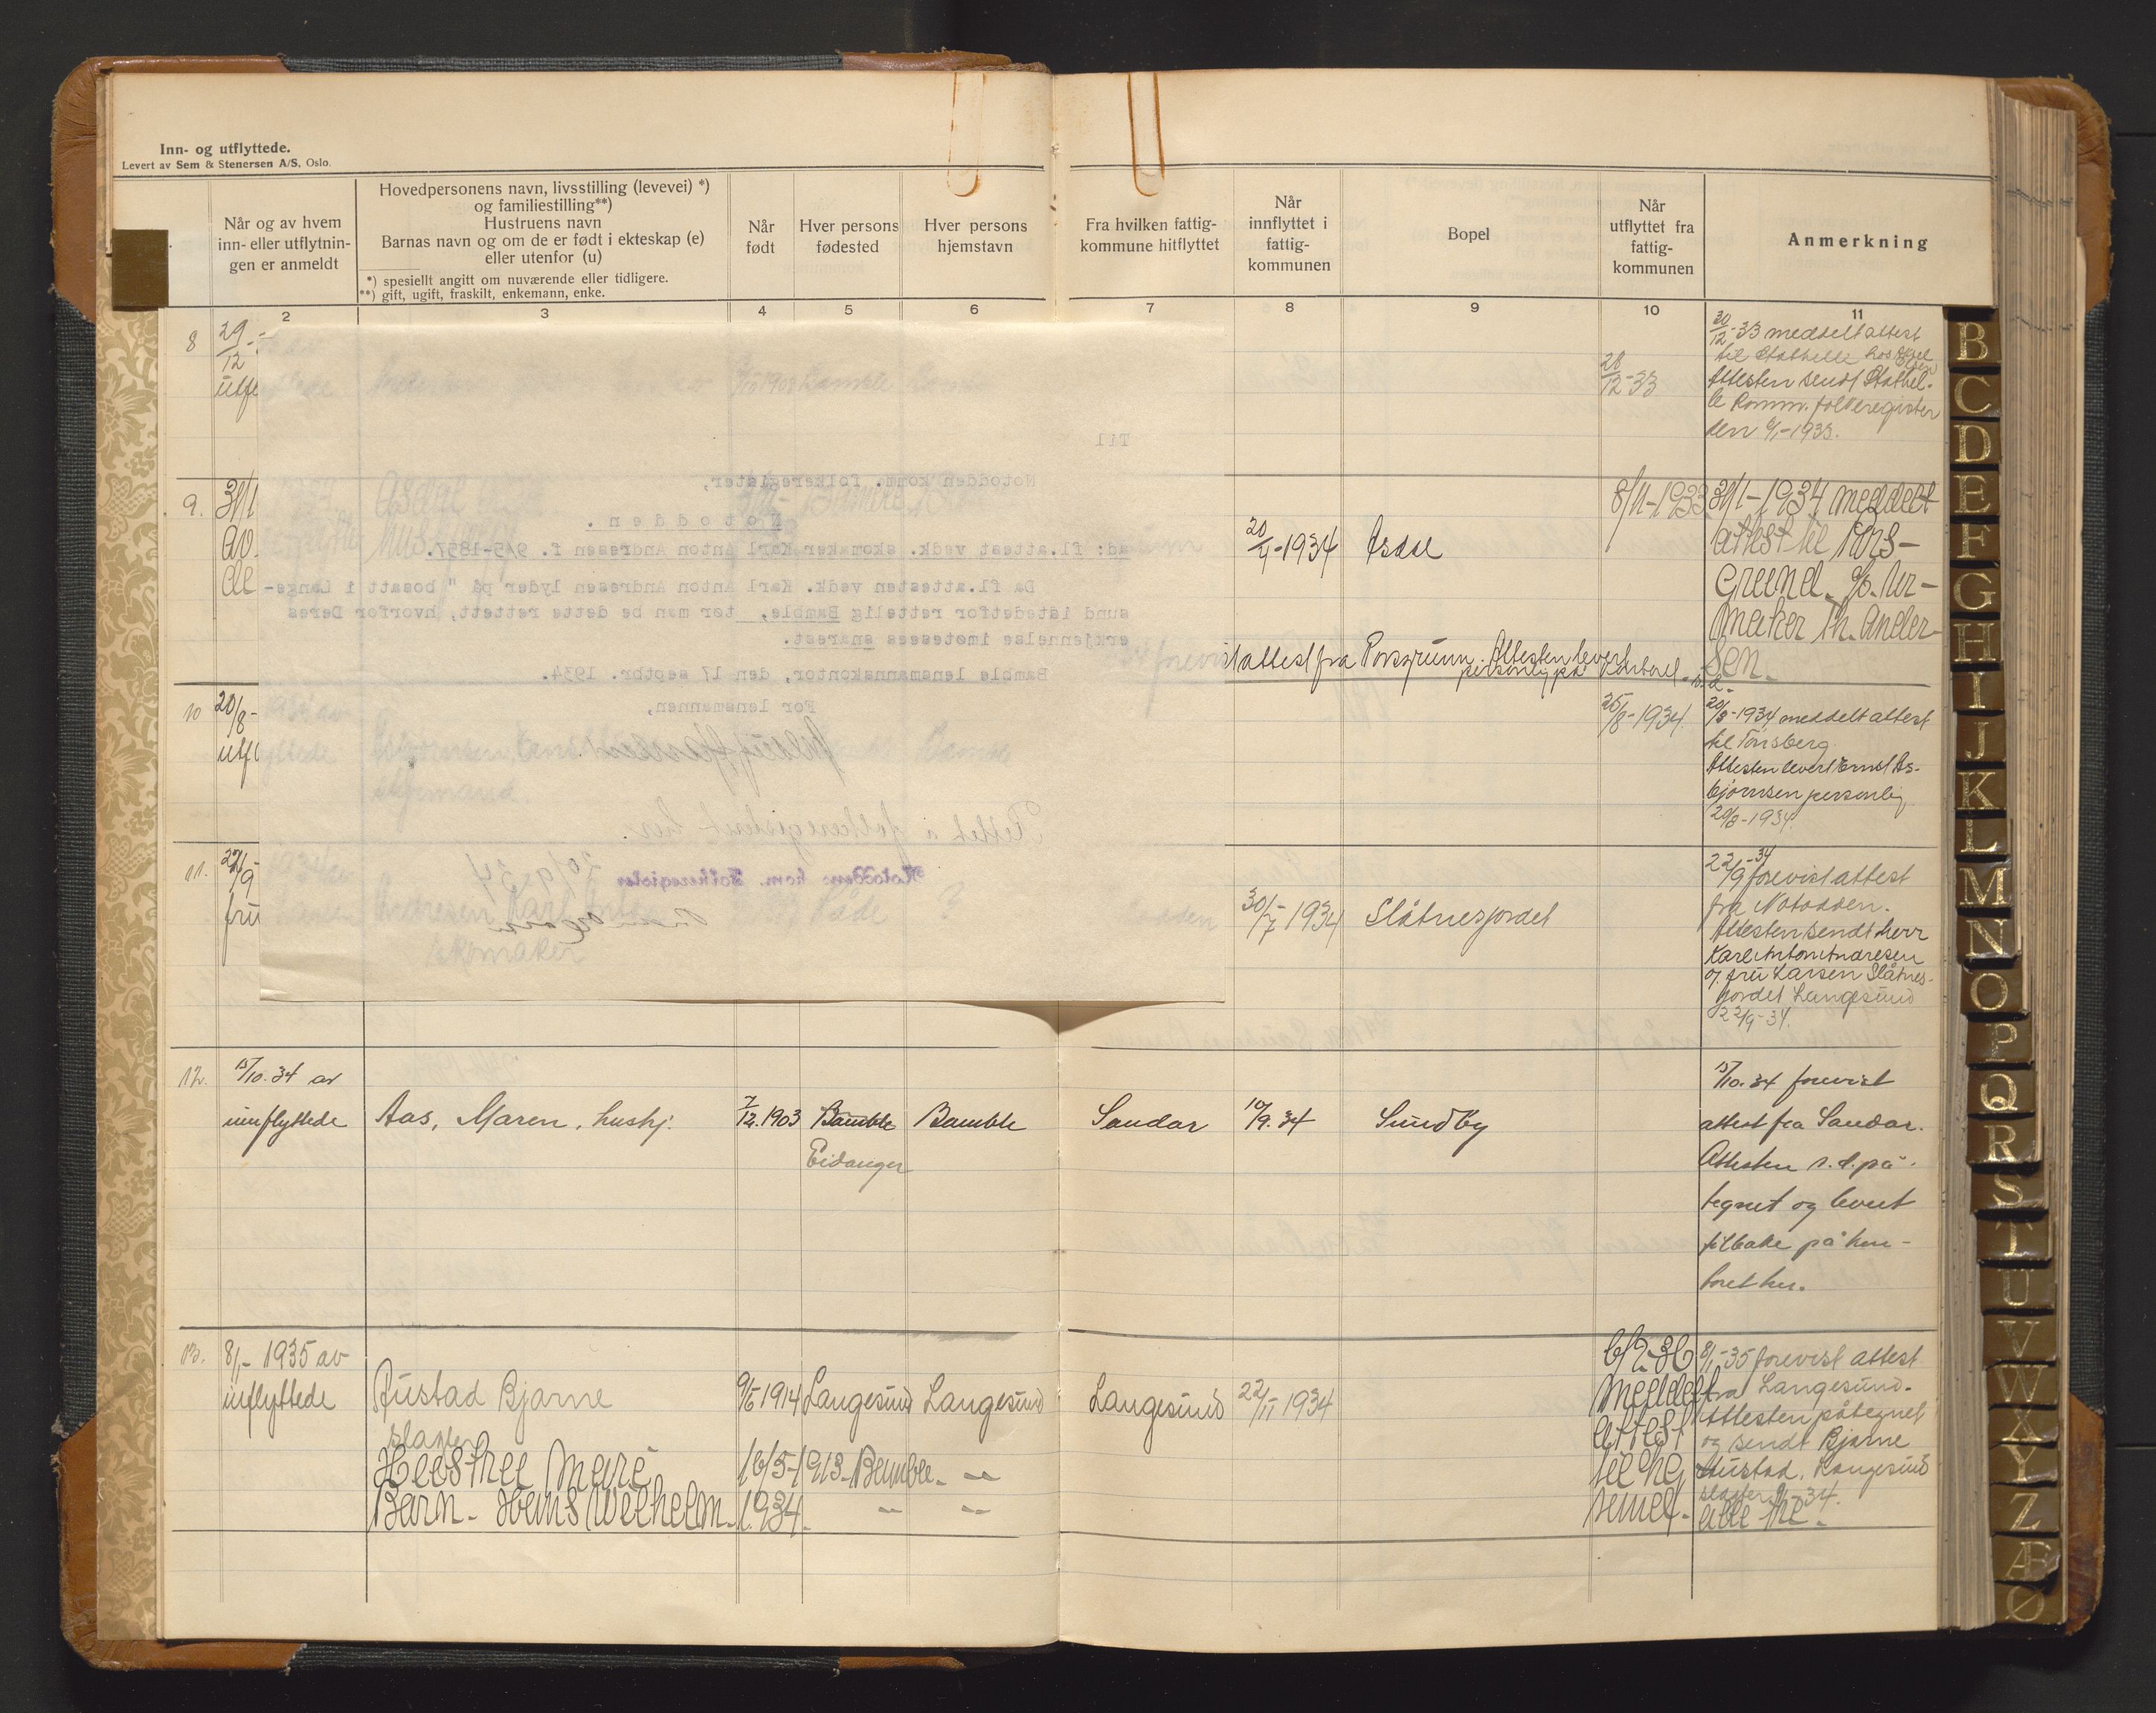 Inn- og utflyttede.
Levert av Sem & Stenersen A/S, Oslo.
Når og av hvem
inn- eller utflytnin-
gen er anmeldt
Hovedpersonens navn, livsstilling (levevei) *)
og familiestilling**)
Hustruens navn
Barnas navn og om de er født i ekteskap (e)
eller utenfor (u)
*) spesiellt angitt om nuværende eller tidligere.
**) gift, ugift, fraskilt, enkemann, enke.
Når
født
Hver persons
fødested
Hver persons
hjemstavn
Fra hvilken fattig-
kommune hitflyttet
Når
innflyttet i
fattig-
kommunen
Bopel
Når
utflyttet fra
fattig-
kommunen
Anmerkning
2 3 4 5 6 7 8 9 10 11
8 29/12
28/12-33
30/12-33 meddelt attest
til Stathelle hos Aksel
Olsen
Attesten sendt Stathel-
le komm. folkeregister
den 6/1-1933.
Til
Notodden komm. folkeregister,
Notodden.
ad: fl.attest vedk. skomaker Karl Anton Andresen f. 9/5-1857.
Da fl.attesten vedk. Karl Anton Andresen lyder på " bosatt i Lange-
sund istedetfor rettelig Bamble, tør man be dette rettett, hvorfor Deres
erkjennelse imøteseees snarest.
Bamble lensmannskontor, den 17 septbr. 1934.
For lensmannen,
Rettet i folkeregistret her.
Notodden kom. Folkeregister 20/9 34
9. 31/1
av.
de
20/4-1934 Asdal
8/11-1933
31/1-1934 meddelt
attest til Pors-
grund. c/o. Ur-
maker Th. Ander-
sen.
forevist attest fra Porsgrunn. Attesten levert
personlig på kontoret. s.d.
10 20/8-
25/8-1934.
20/8-1934 meddelt attest
til Tønsberg.
Attesten levert Ernst As-
bjørnsen personlig
20/8-1934.
11. 22/9
fru
Andresen Karl Anton
skomaker
30/7 1934 Slåtnesjordet
22/9-34 forevist attest
fra Notodden.
Attesten sendt herr
Karl Anton Andresen
o/ fru Larsen Slåtnes-
jordet Langesund
22/9-34.
12. 15/10. 34 av
innflyttede Aas, Maren, hushj. 7/12.1903 Bamble Bamble Sandar 10/9.34 Sundby
Eidanger
15/10.34 forevist
attest fra Sandar.
Attesten s.d. på-
tegnet og levert
tilbake på kon-
toret her.
13. 8/1- 1935 av
innflyttede Rustad Bjarne 9/6 1914 Langesund Langesund Langesund 22/11 1934
slakter
Hustru Marie 16/5-1913- Bamble. -"-
Barn - Hans Wilhelm. 1934. -"- -"-
6/2-36
meddelt
attest
til
8/1-35 forevist attest
fra Langesund.
Attesten påtegnet
og sendt Bjarne
Rustad, Langesund
slakter
B
C
D
E
F
G
H
I
J
K
L
M
N
O
P
Q
R
S
T
U
V
W
X
Y
Z
Æ
Ø